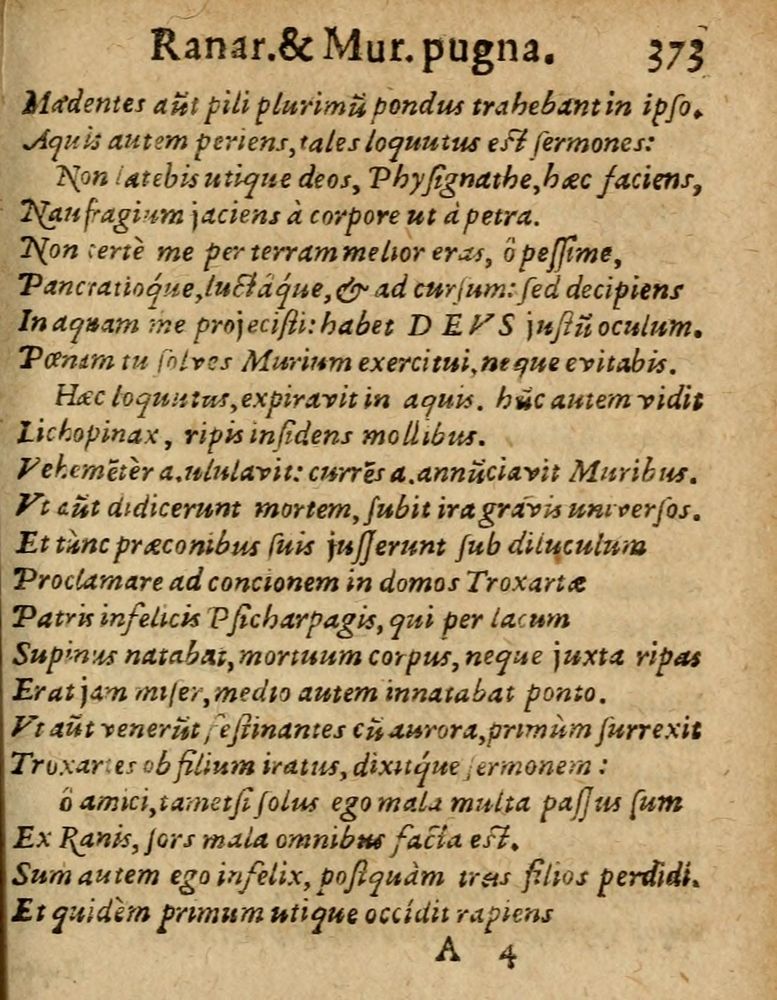 Ranar. & Mur. pugna. 373
Madentes aũt pili plurimũ pondus trahebant in ipso.
Aquis autem periens, tales loquutus est sermones:
Non latebis utique deos, Physignathe, hæc faciens,
Naufragium jaciens à corpore ut à petra.
Non certè me per terram melior eras, ô pessime,
Pancratioq́ue, luctaq́ue, & ad cursum: sed decipiens
In aquam me projecisti: habet DEVS justũ oculum.
Pœnam tu solves Murium exercitui, neque evitabis.
Hæc loquutus, expiravit in aquis. hũc autem vidit
Lichopinax, ripis insidens mollibus.
Vehemẽtèr a. ululavit: currẽs a. annũciavit Muribus.
Vt aũt didicerunt mortem, subit ira gravis universos.
Et tùnc præconibus suis jusserunt sub diluculum
Proclamare ad concionem in domos Troxartæ
Patris infelicis Psicharpagis, qui per lacum
Supinus natabat, mortuum corpus, neque juxta ripas
Erat jam miser, medio autem innatabat ponto.
Vt aũt venerũt festinantes cũ aurora, primùm surrexit
Troxartes ob filium iratus, dixitq́ue sermonem:
ô amici, tametsi solus ego mala multa passus sum
Ex Ranis, sors mala omnibus facta est.
Sum autem ego infelix, postquàm tres filios perdidi.
Et quidèm primum utique occidit rapiens
A 4